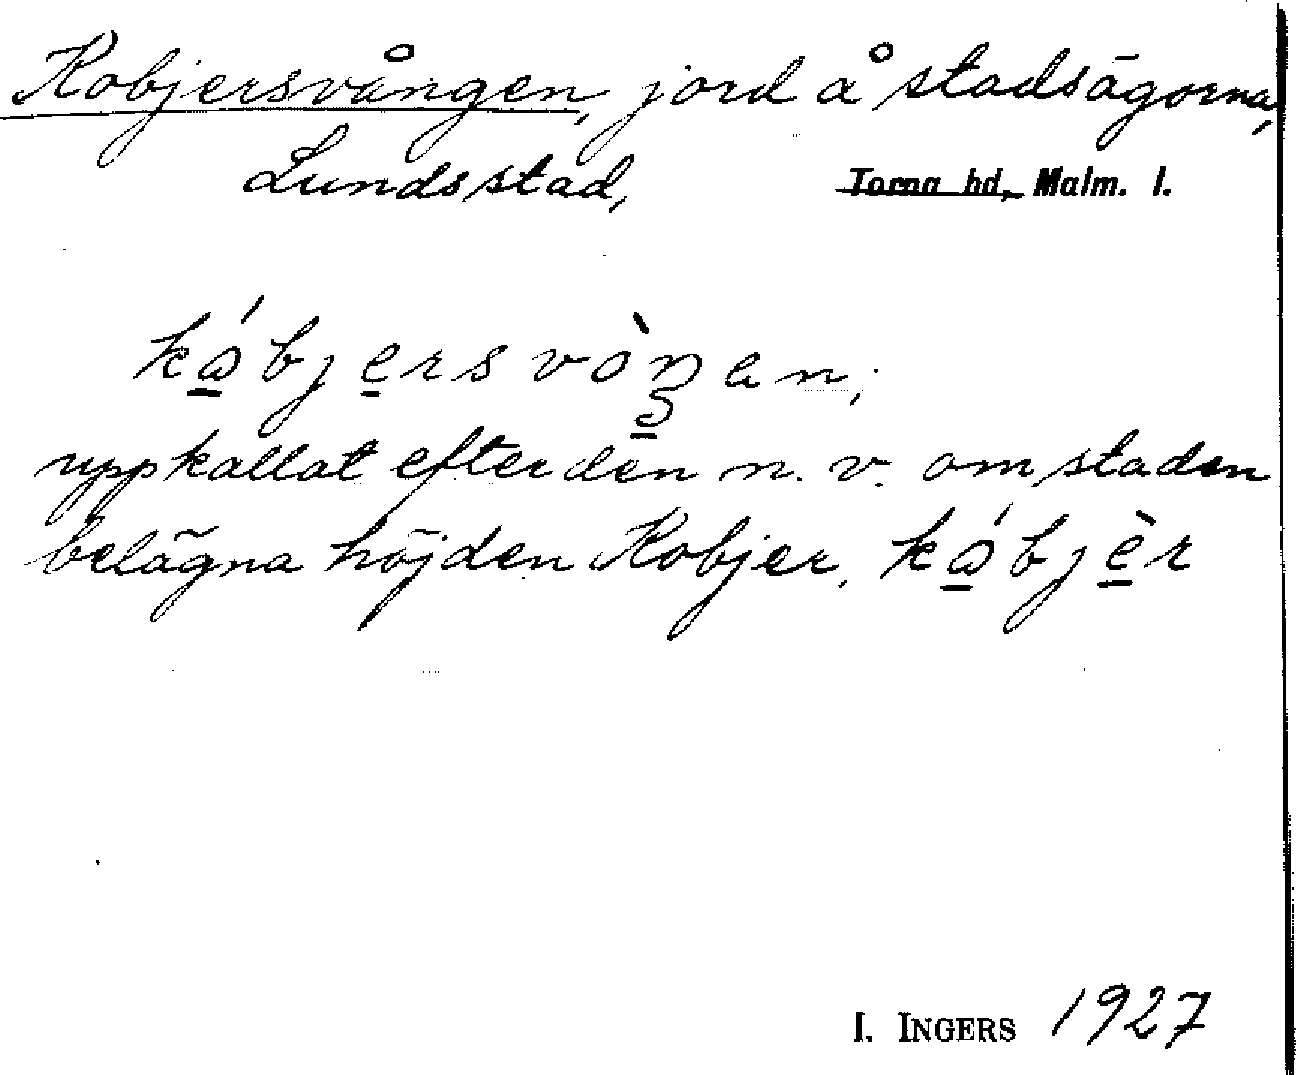 Kobjersvången, jord å stadsägorna,
Lunds stad, Torna hd, Malm. l.
kɷ́bjersvòŋan;
uppkallat efter den n. v. om staden
belägna höjden Kobjer, kɷ́bjèr
I. INGERS 1927